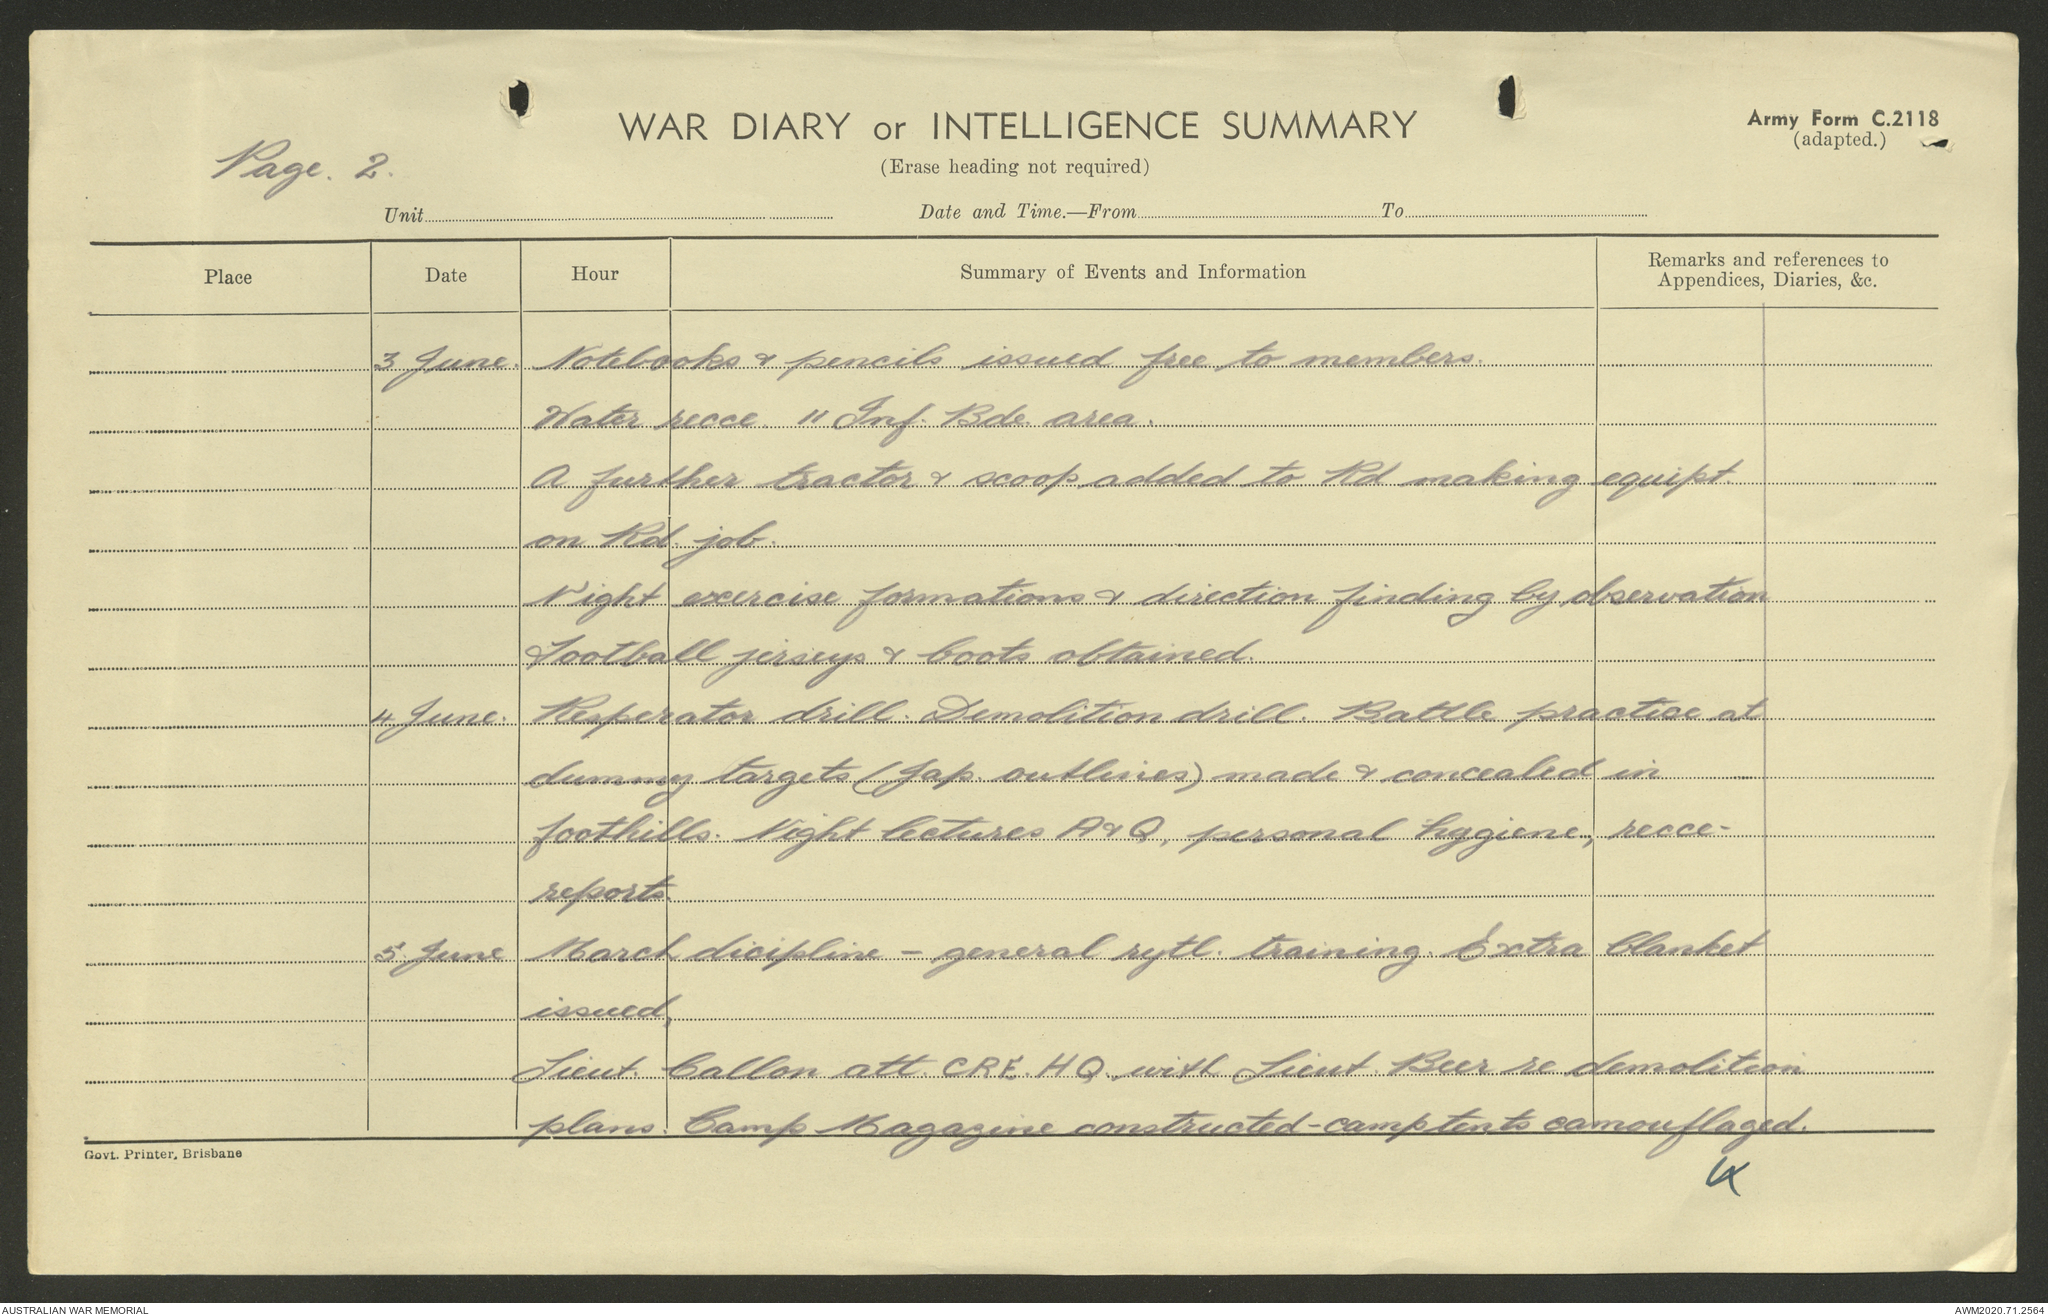 Page. 2.
WAR DIARY or INTELLIGENCE SUMMARY
(Erase heading not required)
Army Form C.2118
(adapted.)
Unit
Date and Time.—From
To
Place
Date
Hour
Summary of Events and Information
Remarks and references to
Appendices, Diaries, &c.
3 June. Notebooks & pencils issued free to members.
Water recce. 11 Inf. Bde. area.
A further tractor & scoop added to Rd making equipt.
on Rd. job.
Night exercise formations & direction finding by observation
Football jerseys & boots obtained.
4 June. Resperator drill. Demolition drill. Battle practise at
dummy targets (Jap. outlines) made & concealed in
foothills. Night lectures A & Q, personal hygiene, recce-
reports.
5 June March dicipline – general training. Extra blanket
issued,
Lieut. Callon att. CRE. HQ. with Lieut. Beer re demolition
plans. Camp Magazine constructed - camp tents camouflaged.
Govt. Printer, Brisbane
AUSTRALIAN WAR MEMORIAL
AWM2020.71.2564